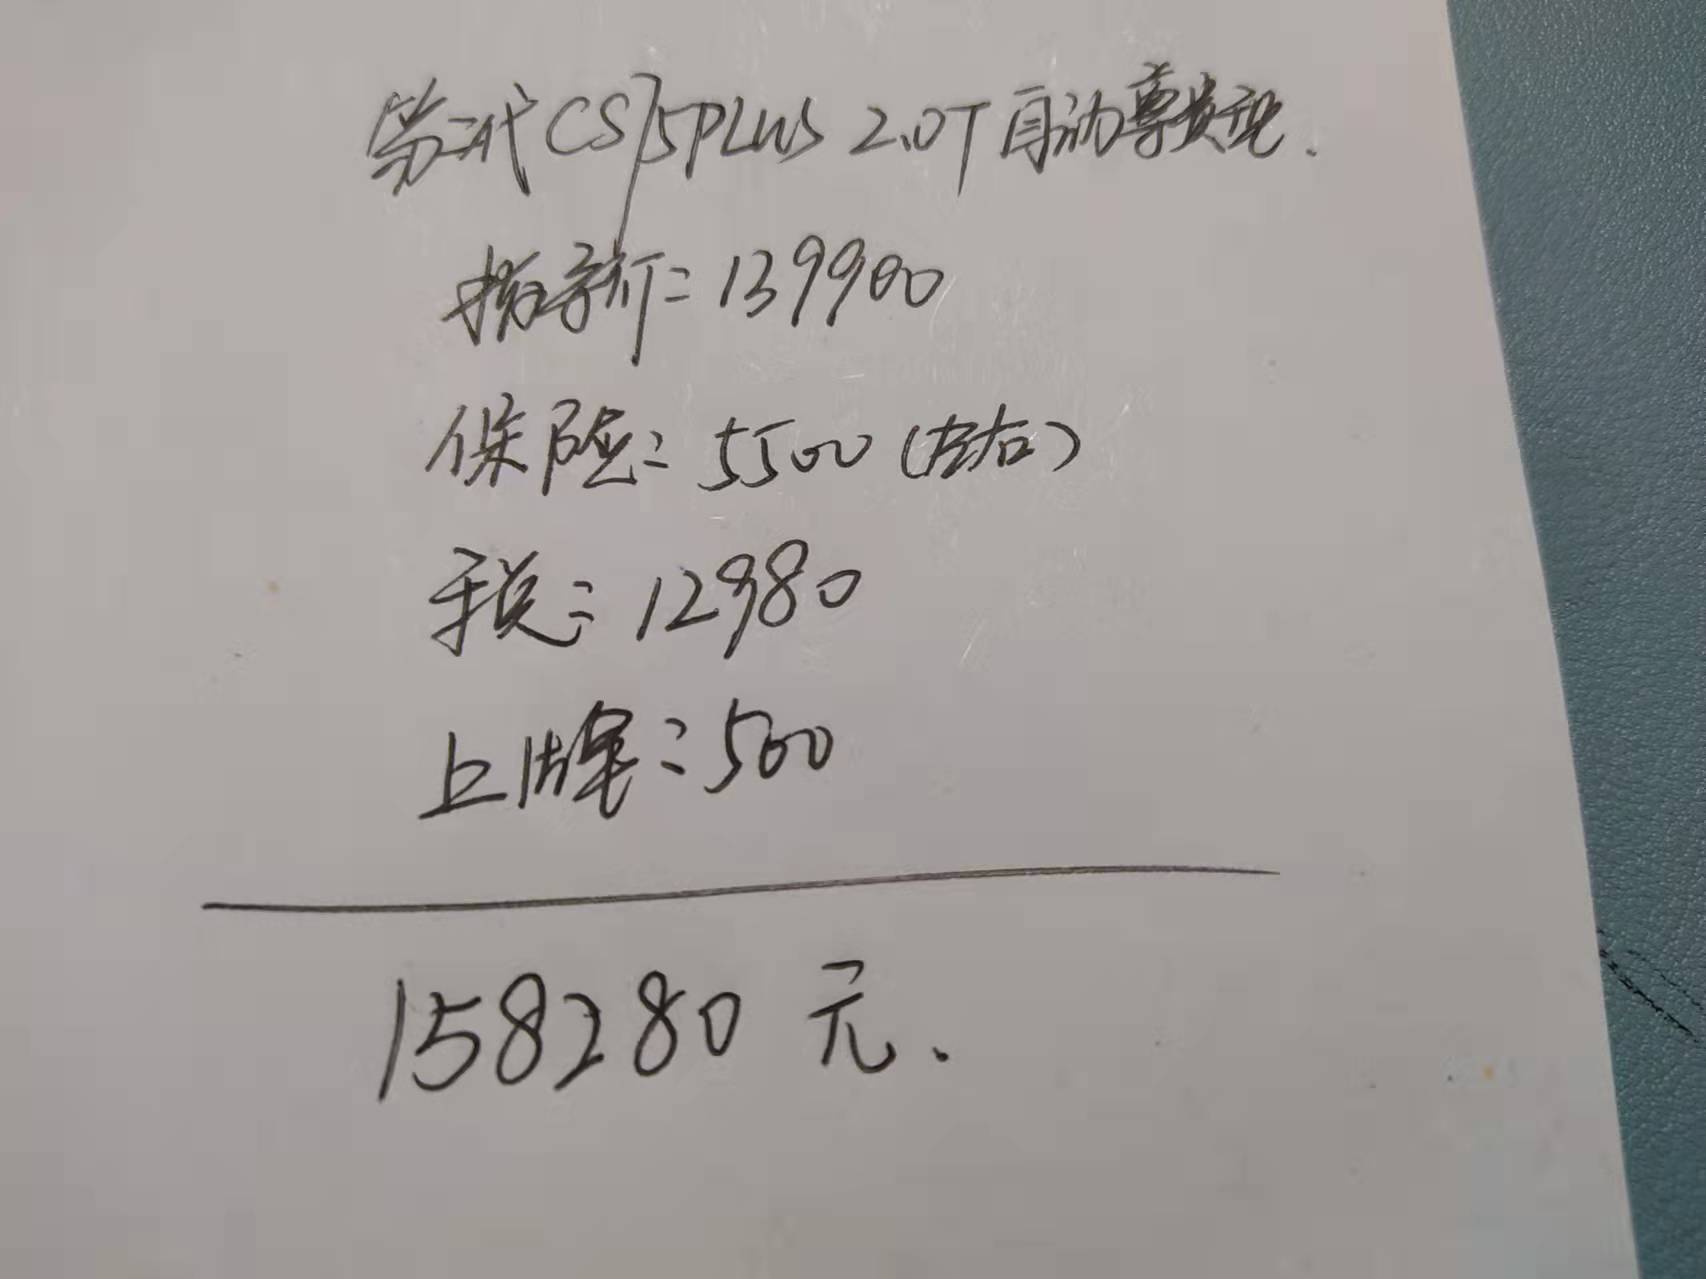 第二代CS75PLUS 2.0T自动尊贵型.
指导价:139900
保险:5500(左右)
税:12980
上牌:500
158280元.